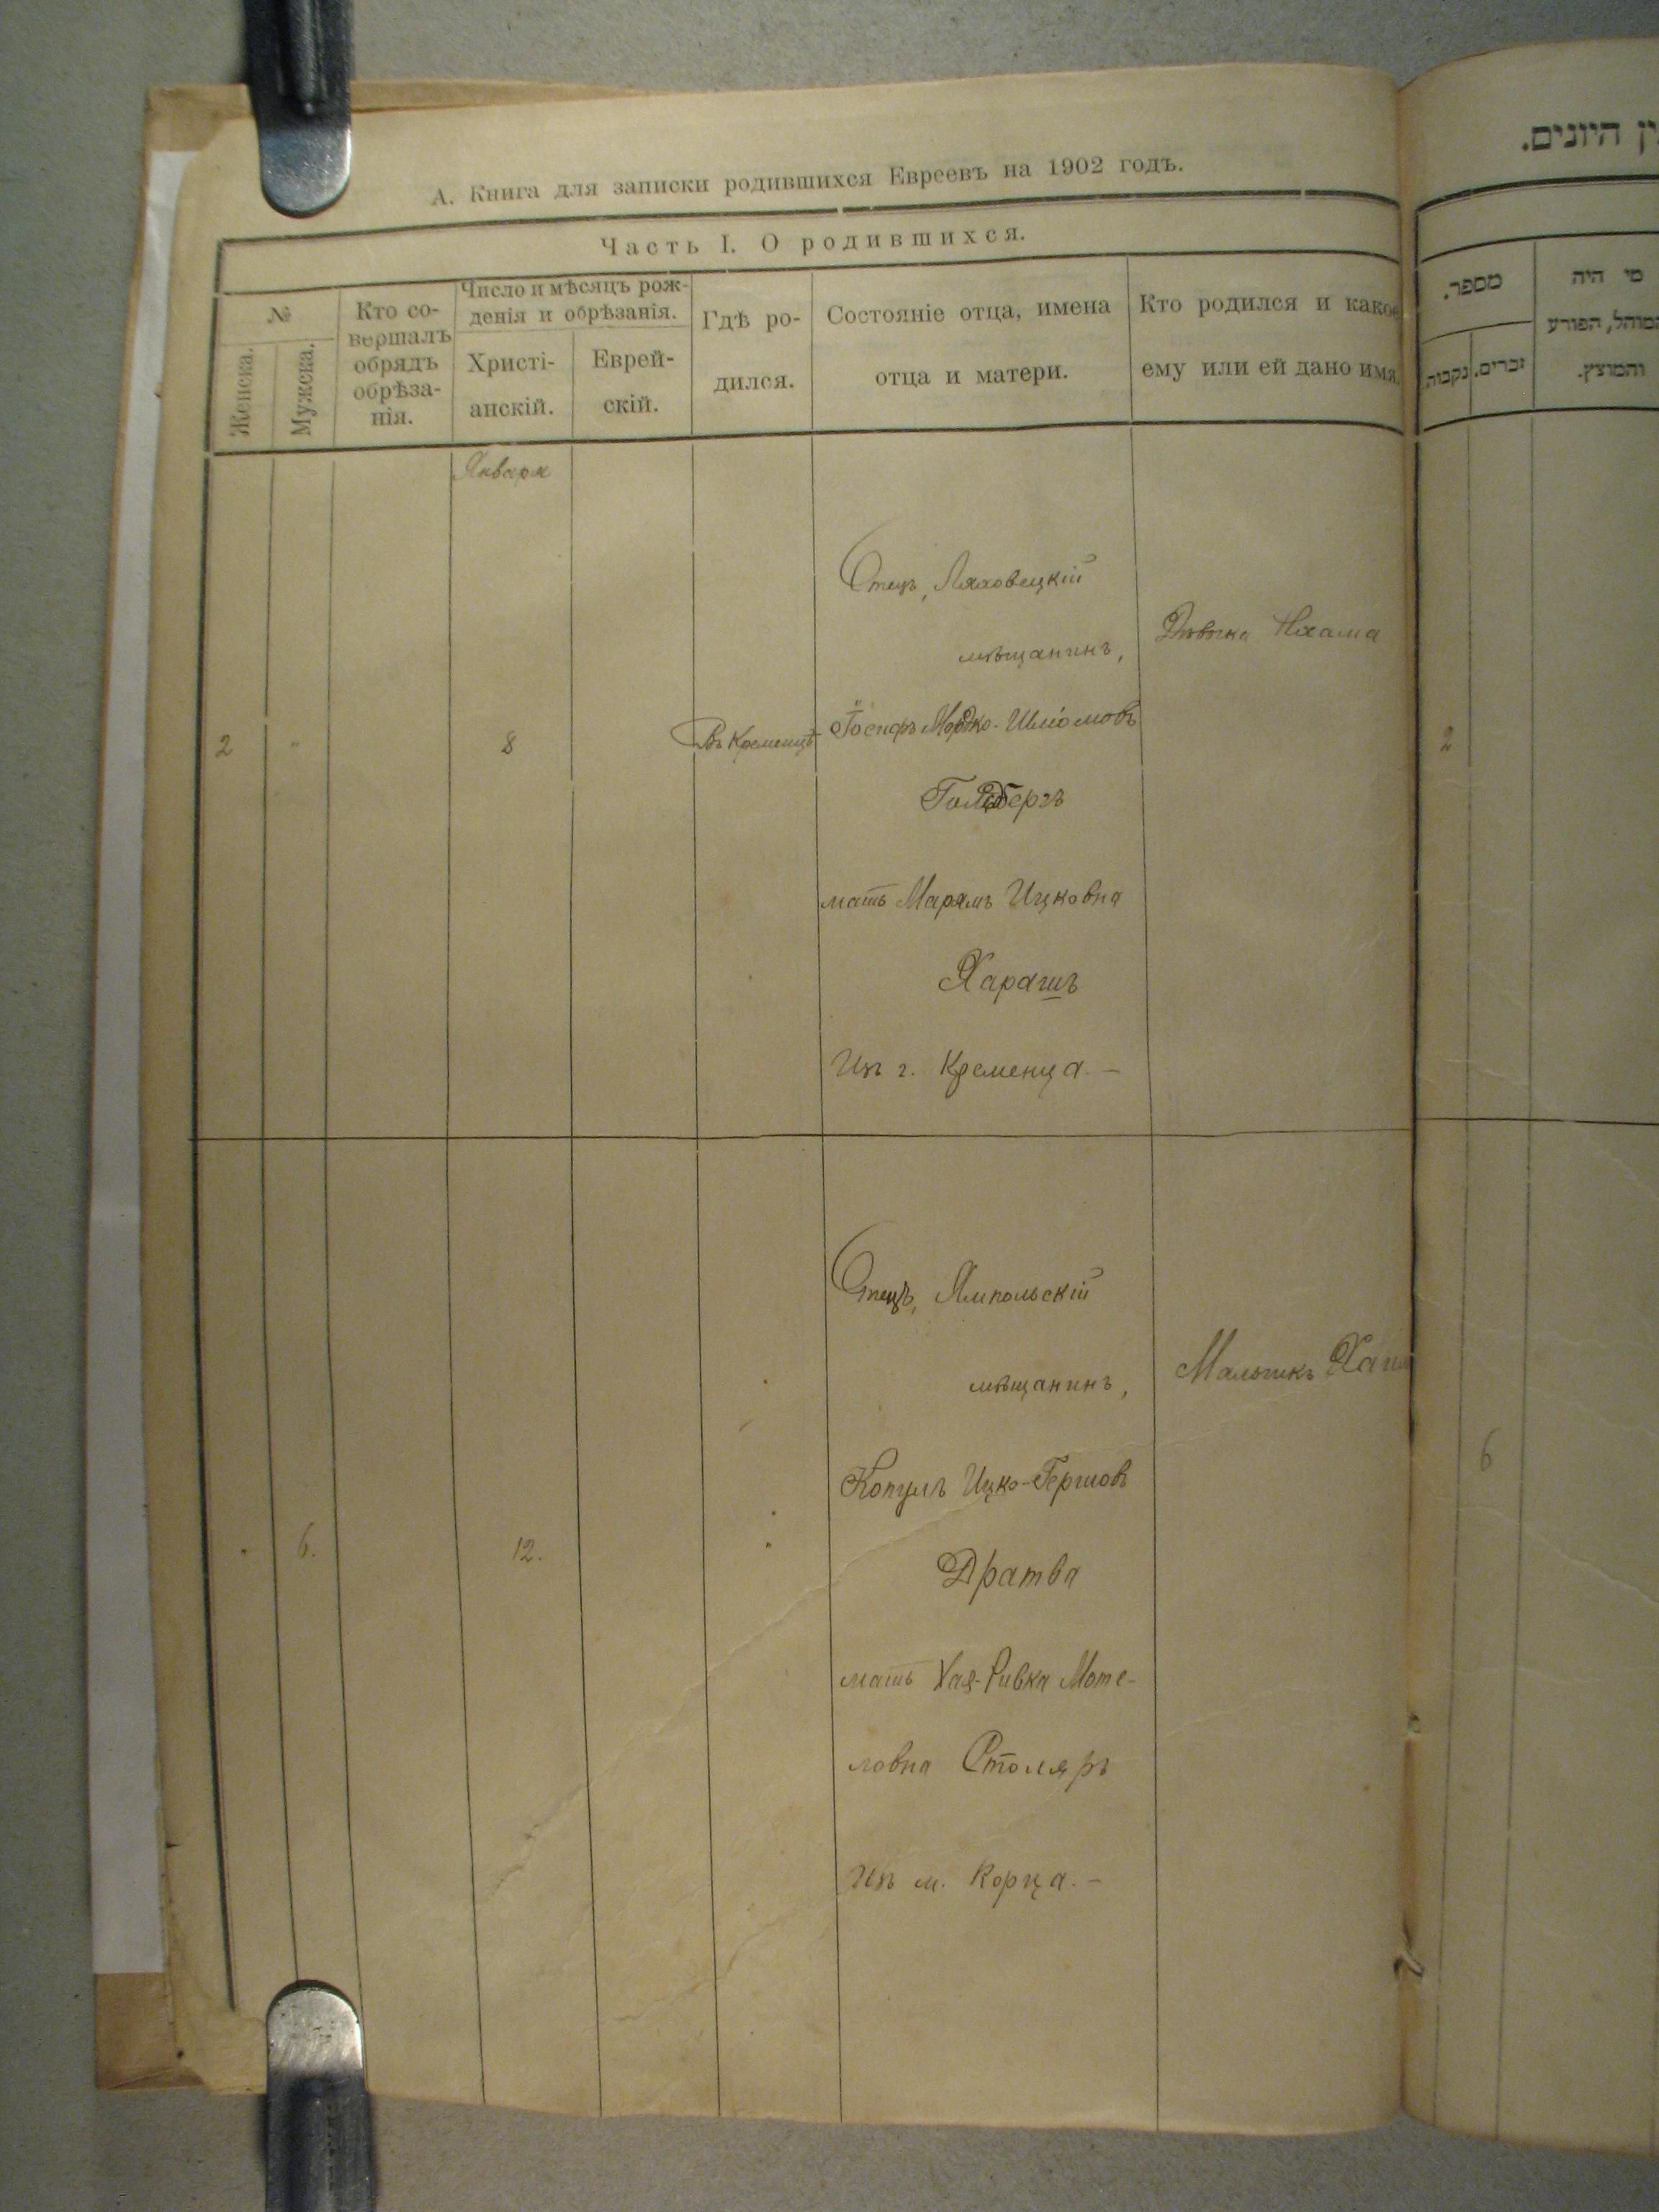 А. Книга для записки родившихся Евреевъ на 1902 годъ.
Часть I. О родившихся.
№
Женска.
Мужска.
Кто со-
вершалъ
обрядъ
обрѣза-
нія.
Число и мѣсяцъ рож-
денія и обрѣзанія.
Христі-
анскій.
Еврей-
скій.
Гдѣ ро-
дился.
Состояніе отца, имена
отца и матери.
Кто родился и какое
ему или ей дано имя.
Января
2
"
8
Въ Кременцѣ
Отецъ, Ляховецкій
мѣщанинъ,
Іосифъ Мордко-Шліомовъ
Гольдбергъ
мать Марямъ Ицковна
Харашъ
Изъ г. Кременца. —
Дѣвочка Нхама
6.
12.
Отецъ, Ямпольскій
мѣщанинъ,
Копулъ Ицко-Гершовъ
Дратва
мать Хая-Ривка Моте-
ловна Столяръ
Изъ м. Корца. —
Мальчикъ
ין היונים.
מספר.
נקבות.
זכרים.
מי היה
המוהל, הפורע
והמוצץ.
2
6